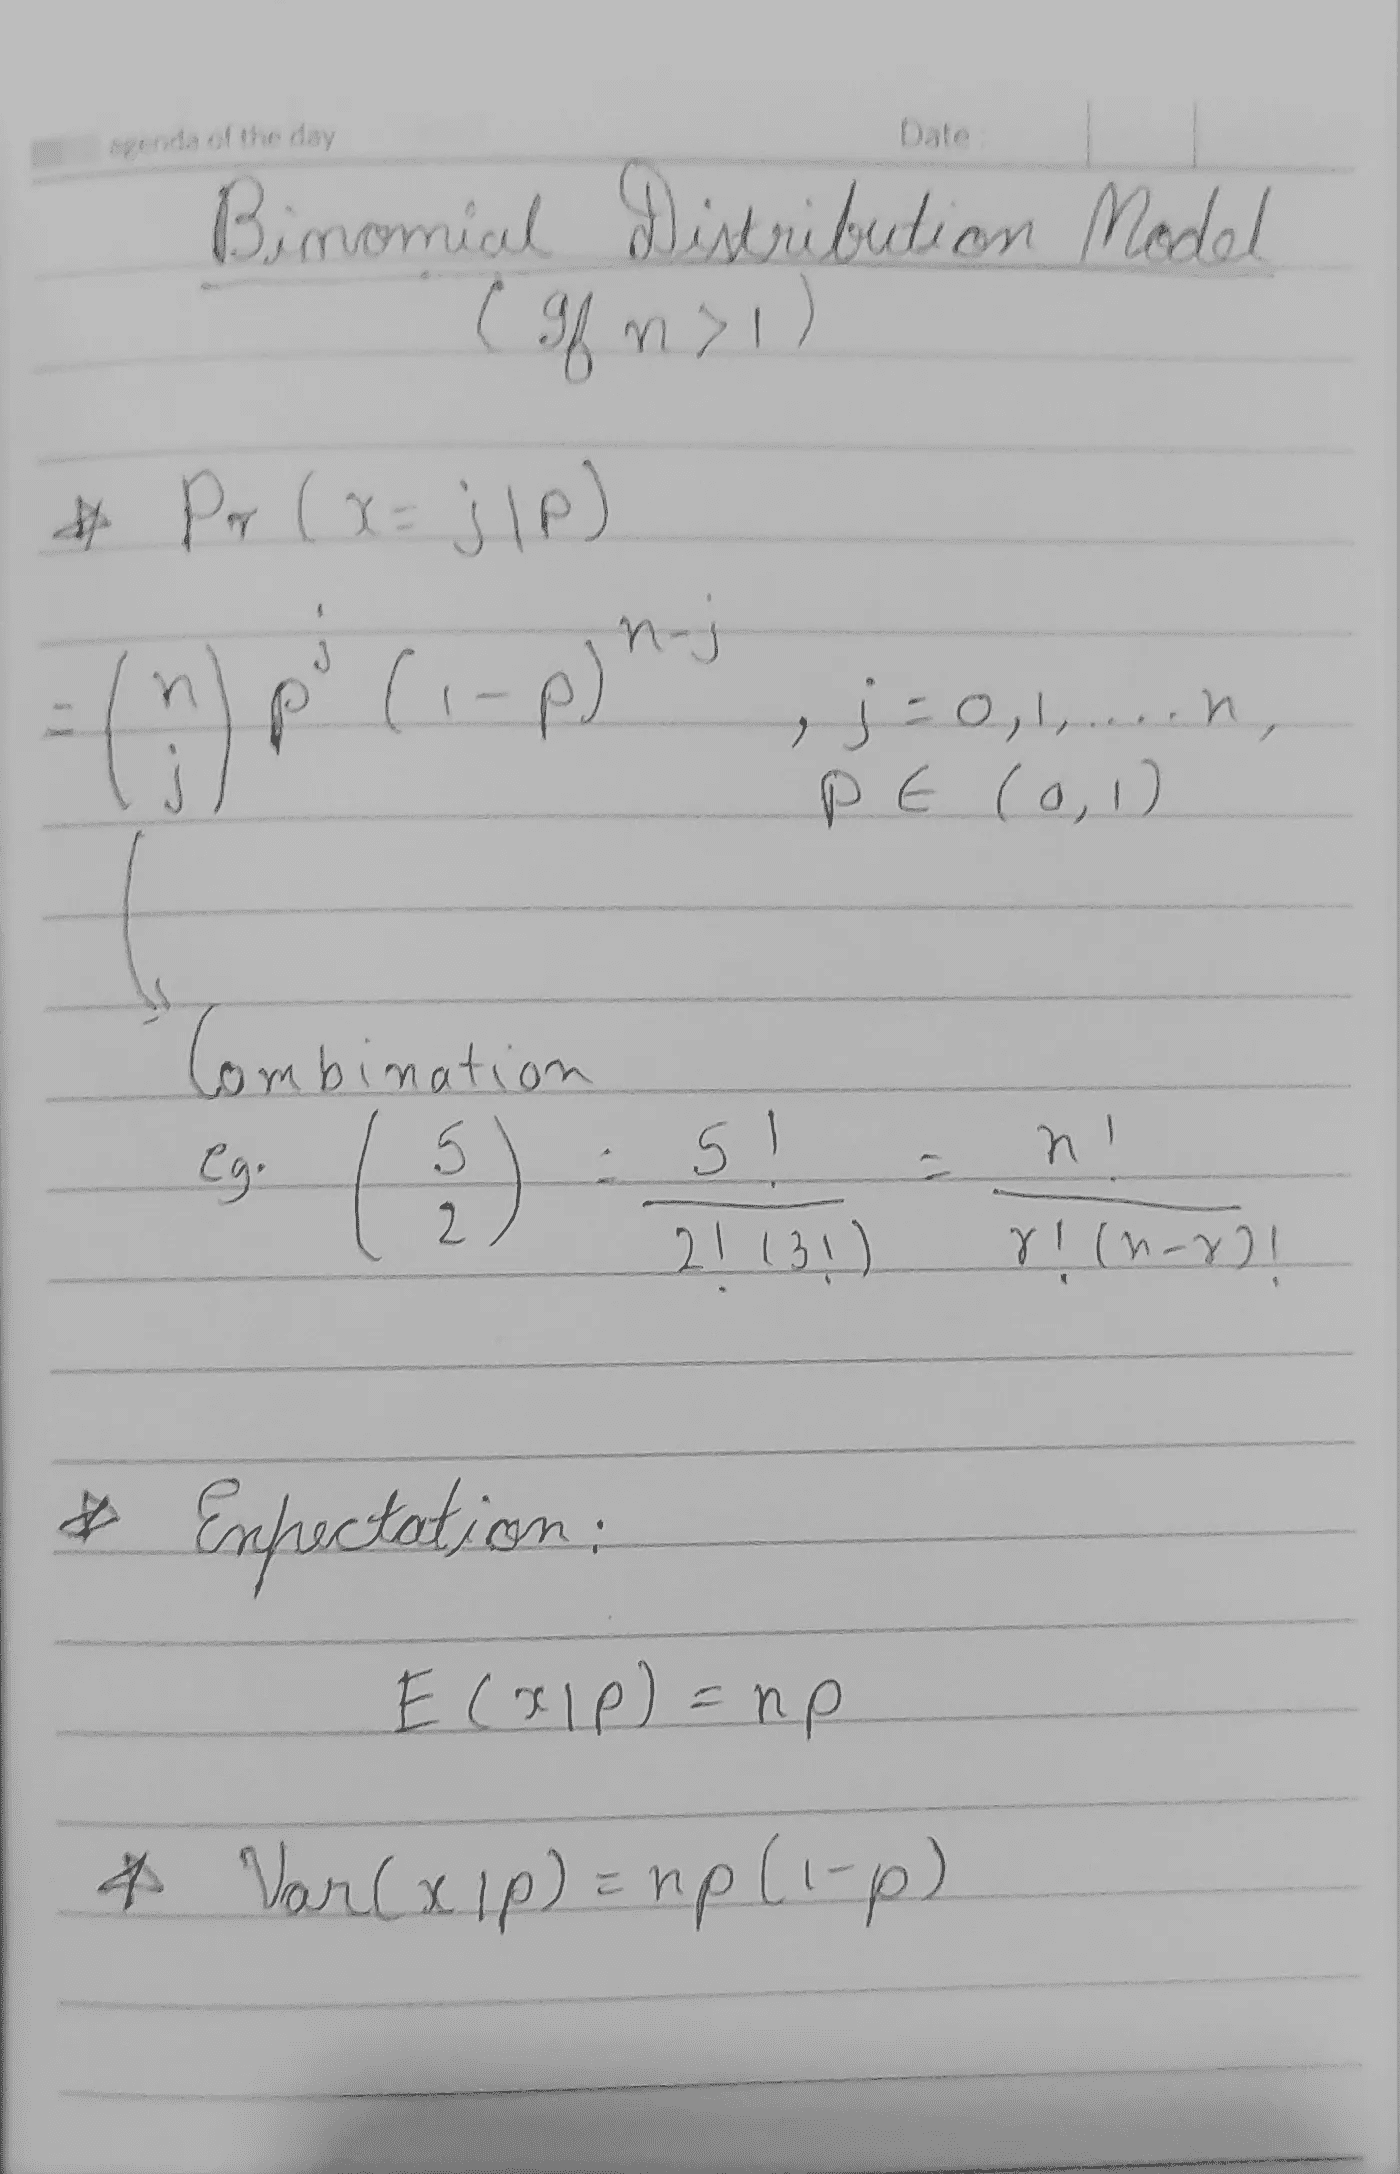 agenda of the day Date
Binomial Distribution Model
(If n>1)
* Pr (x = j|p)
= (n j) p^j (1-p)^n-j , j = 0,1,.....n,
p ∈ (0,1)
Combination
eg. (5 2) = 5! / 2! (3!) = n! / r! (n-r)!
* Expectation:
E (x|p) = np
* Var(x|p) = np(1-p)